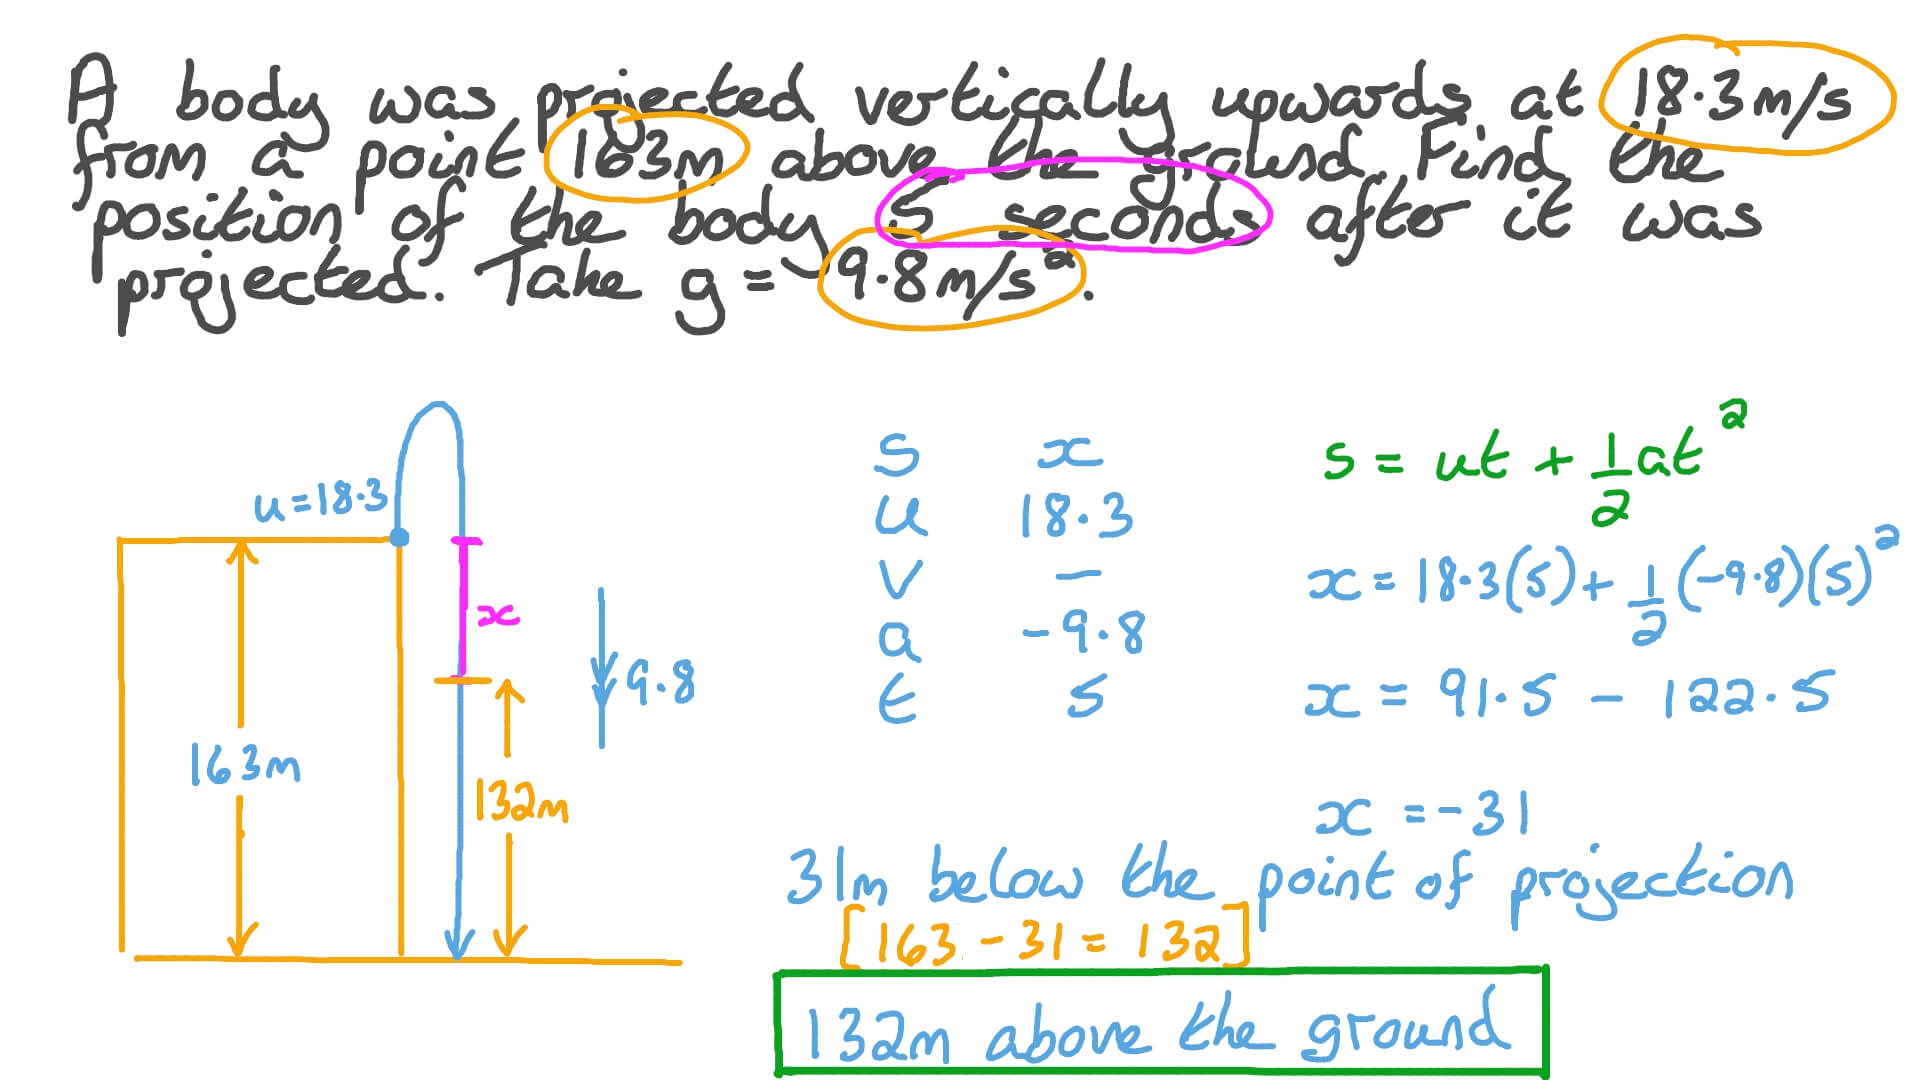 A body was projected vertically upwards at 18.3m/s
from a point 163m above the ground. Find the
position of the body 5 seconds after it was
projected. Take g = 9.8m/s².
u=18.3
x
9.8
163m
132m
s x
u 18.3
v —
a -9.8
t 5
s = ut + 1/2 at²
x = 18.3(5) + 1/2 (-9.8)(5)²
x = 91.5 - 122.5
x = -31
31m below the point of projection
[163 - 31 = 132]
132m above the ground